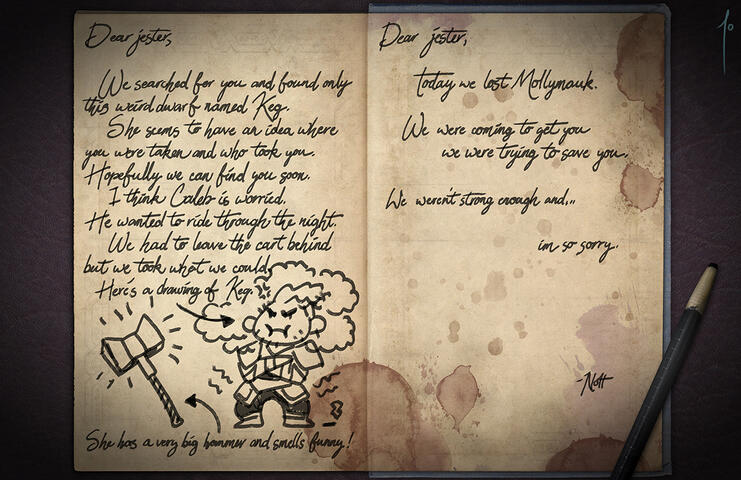 Dear jester,
We searched for you and found only
this weird dwarf named Keg.
She seems to have an idea where
you were taken and who took you.
Hopefully we can find you soon.
I think Caleb is worried.
He wanted to ride through the night.
We had to leave the cart behind
but we took what we could.
Here's a drawing of Keg.
She has a very big hammer and smells funny!
Dear jester,
Today we lost Mollymauk.
We were coming to get you
we were trying to save you.
We weren't strong enough and...
im so sorry.
-Nott